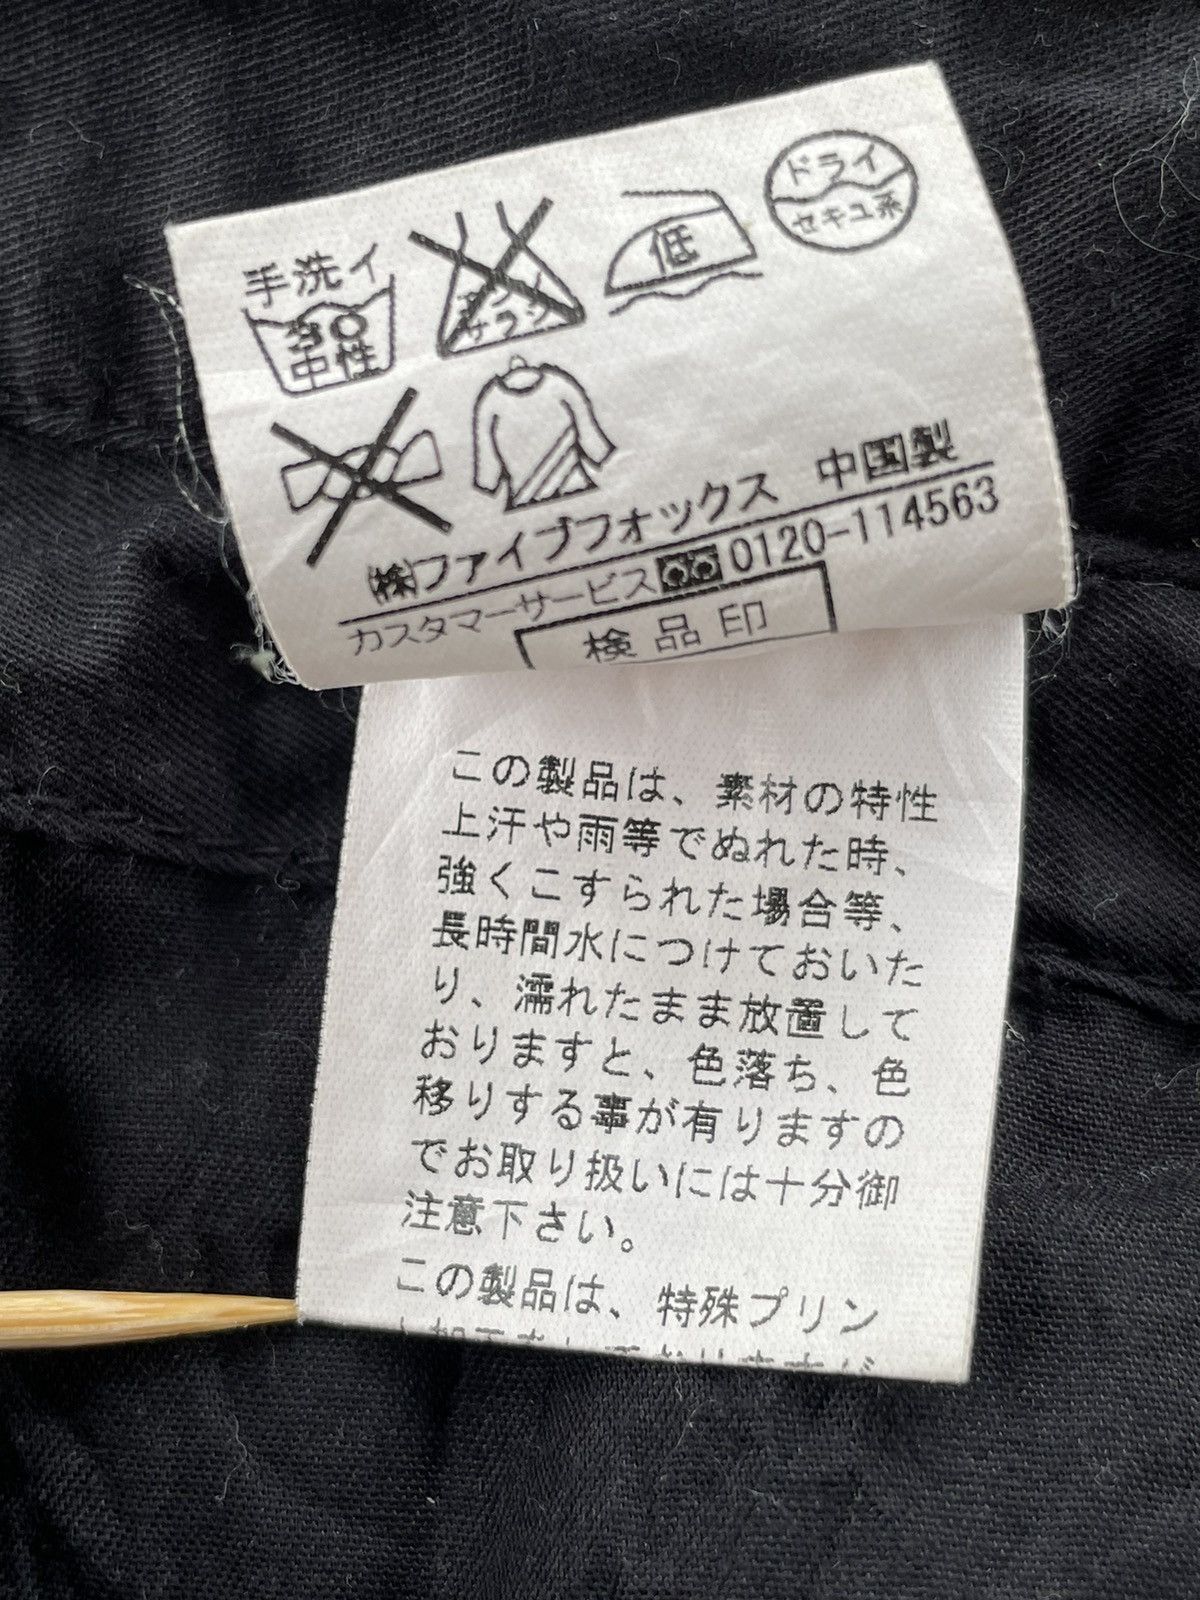 手洗イ
30
中性
エンソ
サラシ
低
ドライ
セキユ系
㈱ファイブフォックス 中国製
カスタマーサービス 0120-114563
検品印
この製品は、素材の特性
上汗や雨等でぬれた時、
強くこすられた場合等、
長時間水につけておいた
り、濡れたまま放置して
おりますと、色落ち、色
移りする事が有りますの
でお取り扱いには十分御
注意下さい。
この製品は、特殊プリン